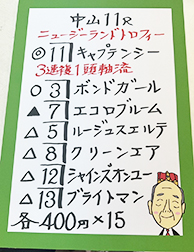 中山11R
ニュージーランドトロフィー
◎11 キャプテンシー
3連複1頭軸流
○3 ボンドガール
▲7 エコロブルーム
△5 ルージュスエルテ
△8 クリーンエア
△12 シャインズオンユー
△13 ブライトマン
各400円×15